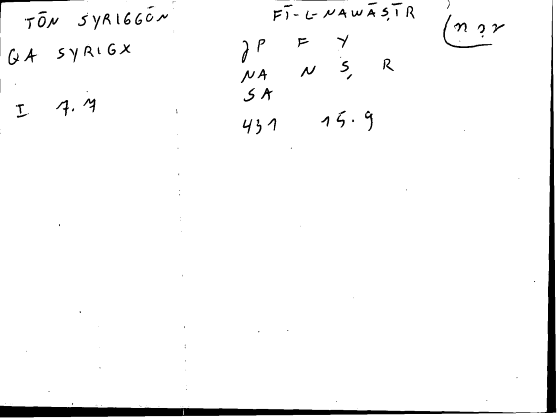 TŌN SYRIGGŌN
QA SYRIGX
I 7.7
FĪ-L-NAWĀṢĪR
JP F Y
NA N Ṣ R
SA
431 15.9